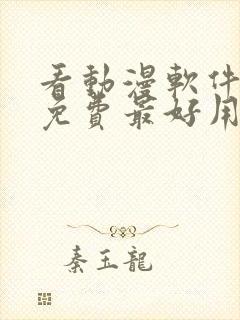 看動漫軟件
免費最好用
秦玉龍